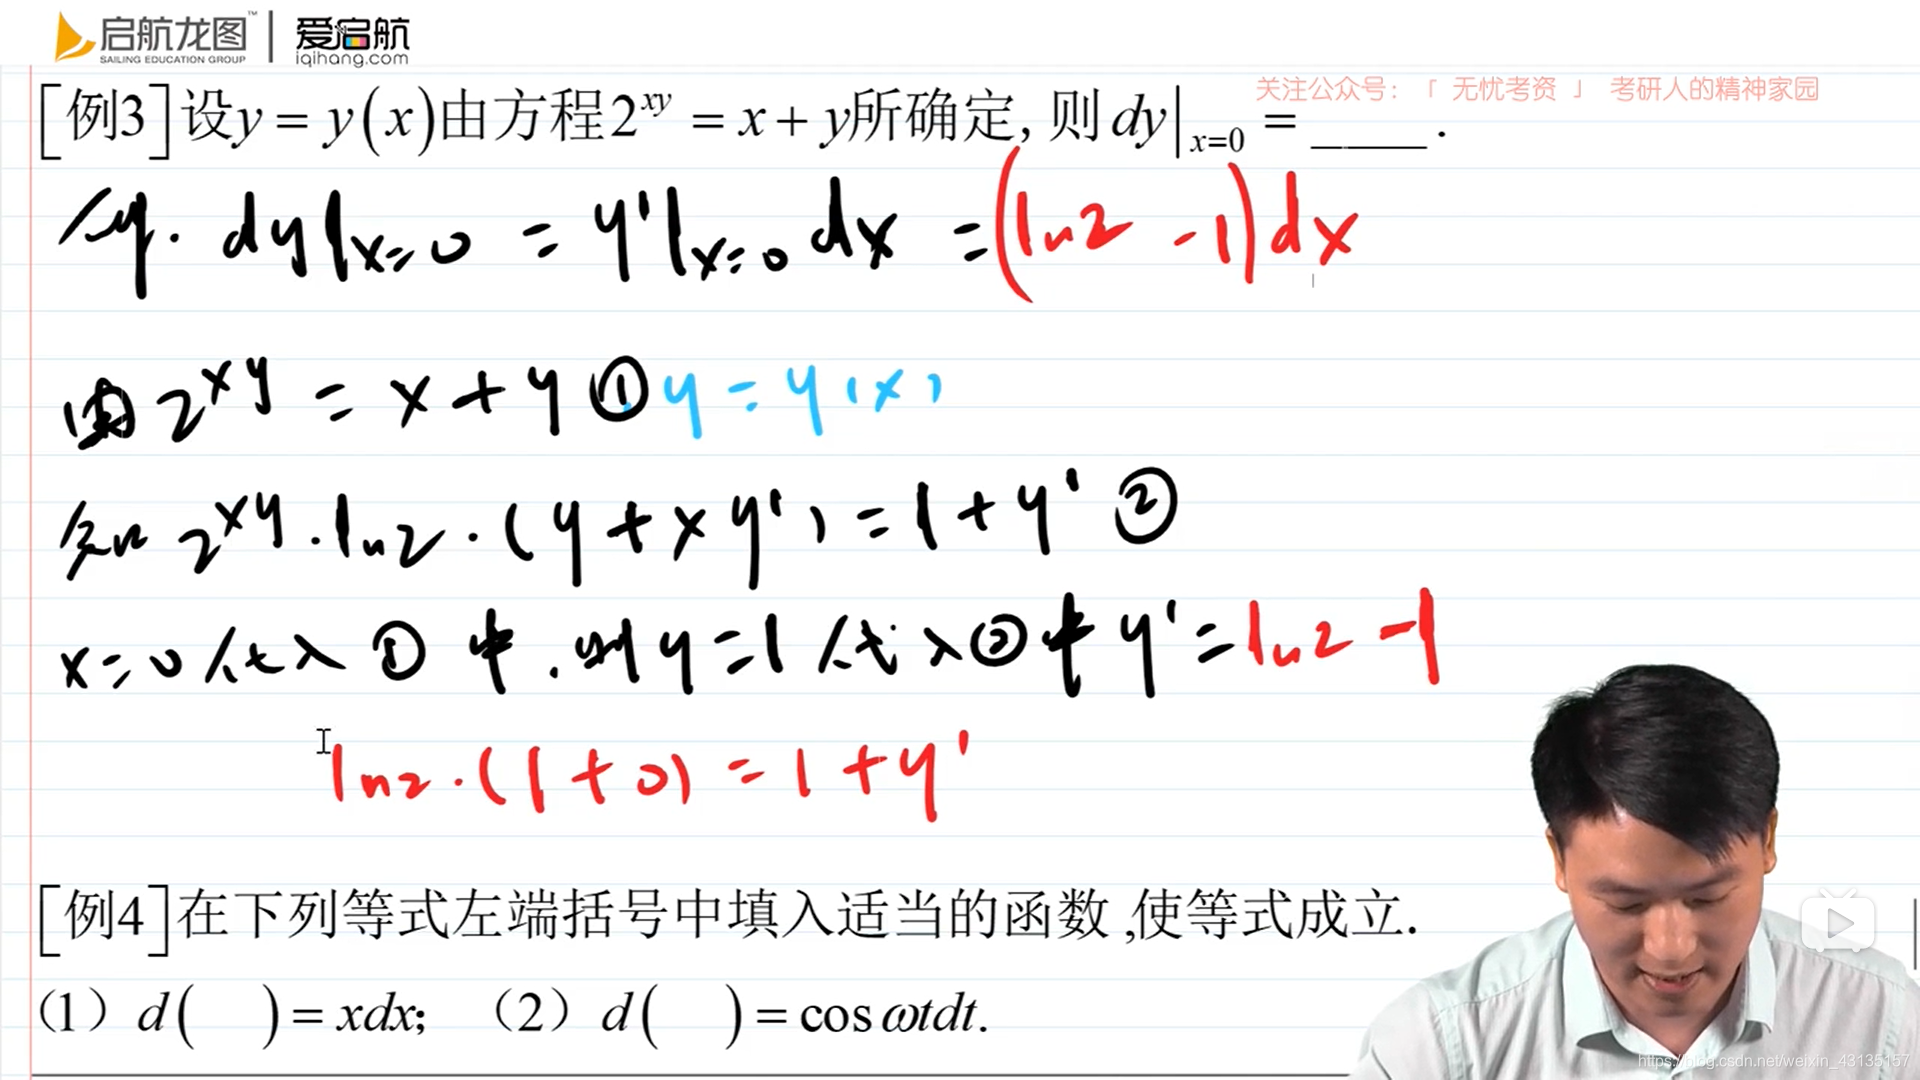 启航龙图™ | 爱启航
SAILING EDUCATION GROUP iqihang.com
关注公众号：「 无忧考资 」 考研人的精神家园
[例3]设y = y(x)由方程2^{xy} = x + y所确定, 则 dy|_{x=0} = ____.
分析. dy|_{x=0} = y'|_{x=0} dx = (ln2 - 1)dx
由 2^{xy} = x + y ① y = y(x)
知 2^{xy} · ln2 · (y + xy') = 1 + y' ②
x=0 代入 ① 中. 则 y=1 代入② 中 y' = ln2 - 1
ln2 · (1 + 0) = 1 + y'
[例4]在下列等式左端括号中填入适当的函数,使等式成立.
（1）d(  ) = xdx; （2）d(  ) = cos ωtdt.
https://blog.csdn.net/weixin_43135157